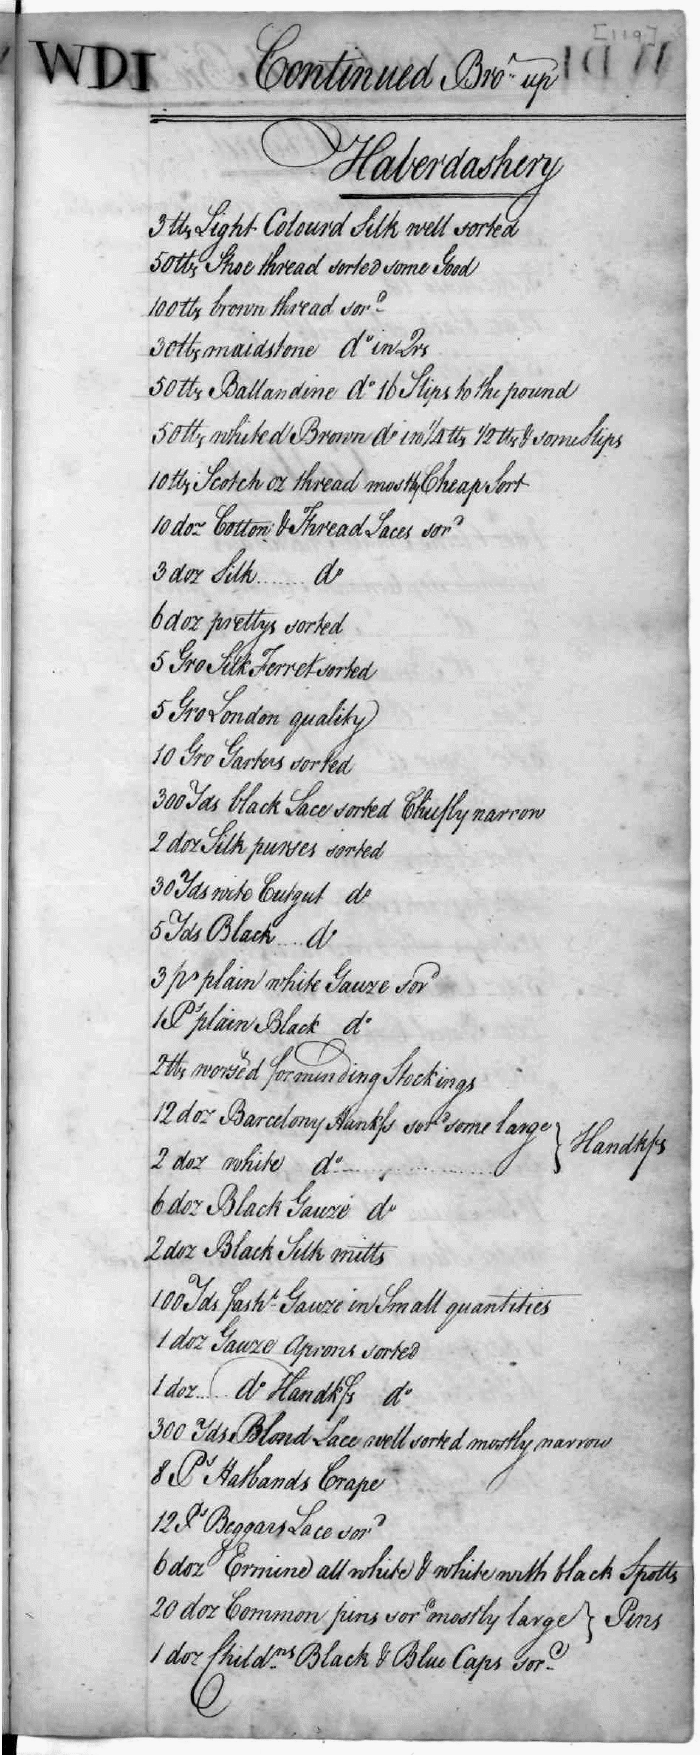 [119]
WDI Continued Bro.r up
Haberdashery
3 lb Light Colourd Silk well sorted
50 lb Shoe thread sorted some Good
100 lb brown thread sor.d
30 lb maidstone do in Qrs
50 lb Ballandine do 16 Slips to the pound
50 lb whited Brown do in 1/4 lb 1/2 lb & some Slips
10 lb Scotch oz thread mostly Cheap Sort
10 doz Cotton & Thread Laces sord
3 doz Silk ...... do
6 doz prettys sorted
5 Gro Silk Ferret sorted
5 Gro London quality
10 Gro Garters sorted
300 Yds black Lace sorted Chiefly narrow
2 doz Silk purses sorted
30 Yds wite Cutgut do
5 Yds Black .... do
3 ps plain white Gauze sord
1 Ps plain Black do
2 lb worsed for minding Stockings
12 doz Barcelony Hankfs sord some large } Handkfs
2 doz white do
6 doz Black Gauze do
2 doz Black Silk mitts
100 Yds fash.l Gauze in Small quantities
1 doz Gauze Aprons sorted
1 doz .... do Handkfs do
300 Yds Blond Lace well sorted mostly narrow
8 Ps Hatbands Crape
12 Ps Beggars Lace sord
6 doz Ermine all white & white with black Spotts
20 doz Common pins sord mostly large } Pins
1 doz Childns Black & Blue Caps sord